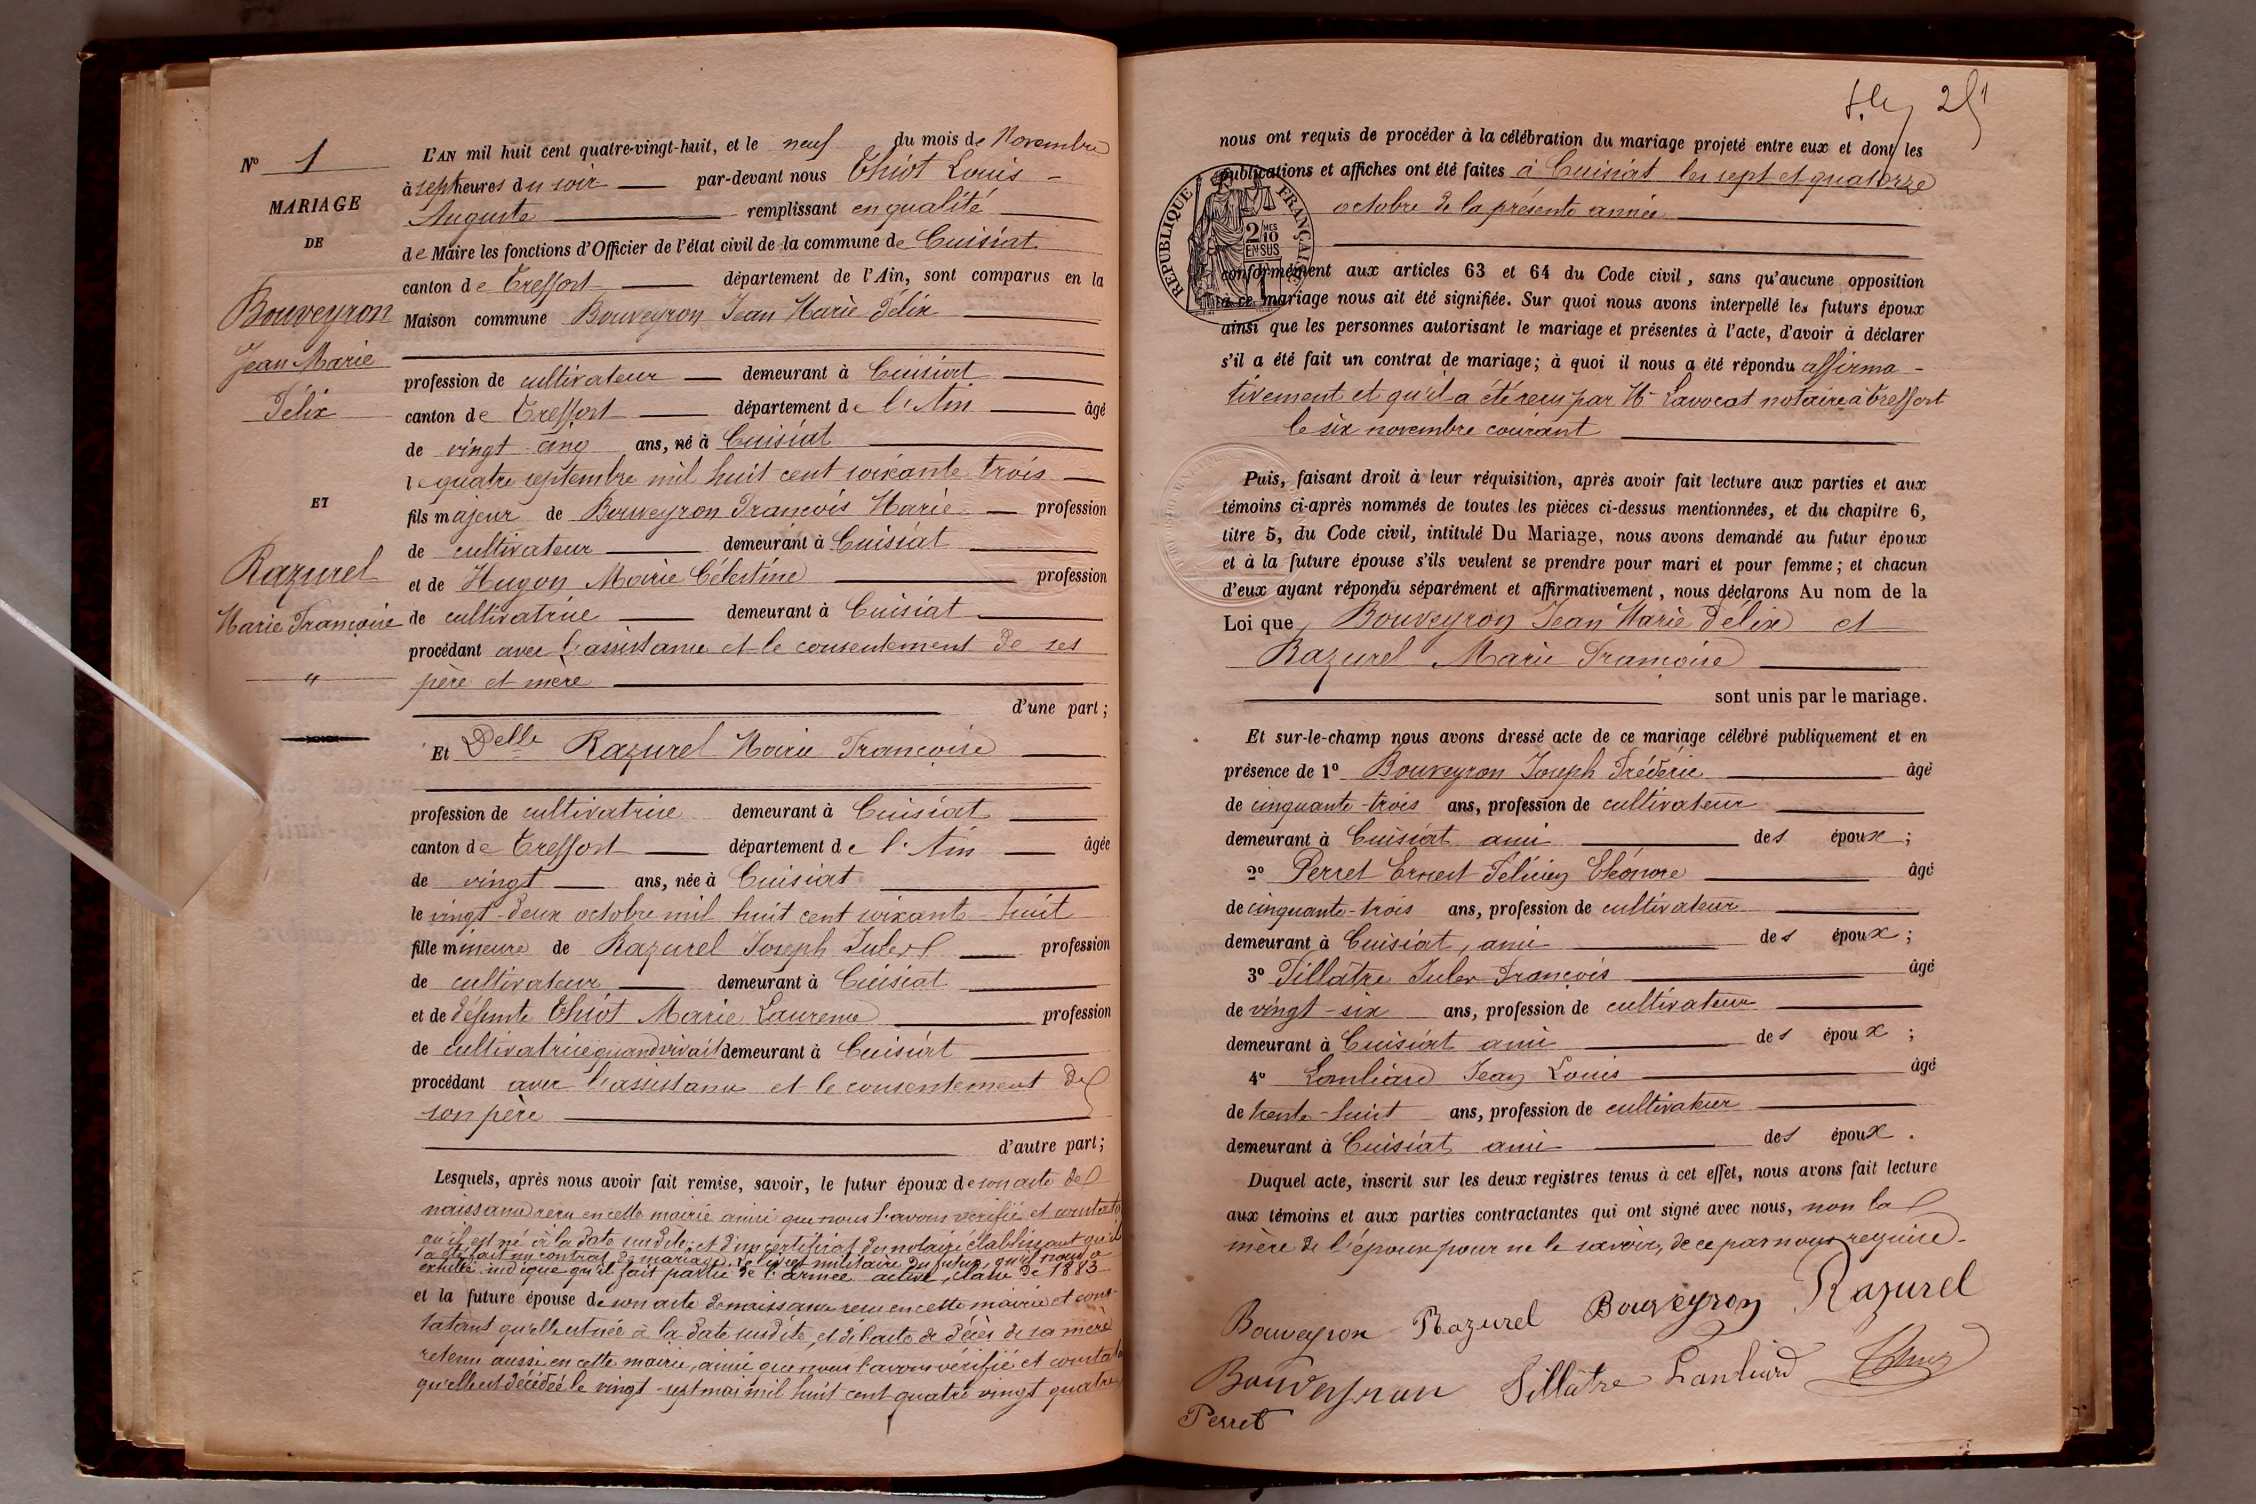 N° 1
MARIAGE
DE
Bouveyron
Jean Marie
Félix
ET
Razurel
Marie Françoise
"
L'AN mil huit cent quatre-vingt-huit, et le neuf du mois de Novembre
à sept heures du soir par-devant nous Chiot Louis -
Auguste remplissant en qualité
de Maire les fonctions d'Officier de l'état civil de la commune de Cuisiat
canton de Treffort département de l'Ain, sont comparus en la
Maison commune Bouveyron Jean Marie Félix
profession de cultivateur demeurant à Cuisiat
canton de Treffort département de l'Ain âgé
de vingt cinq ans, né à Cuisiat
le quatre septembre mil huit cent soixante trois
fils majeur de Bouveyron François Marie profession
de cultivateur demeurant à Cuisiat
et de Hugon Marie Célestine profession
de cultivatrice demeurant à Cuisiat
procédant avec l'assistance et le consentement de ses
père et mère
d'une part ;
Et Delle Razurel Marie Françoise
profession de cultivatrice demeurant à Cuisiat
canton de Treffort département de l'Ain âgée
de vingt ans, née à Cuisiat
le vingt-deux octobre mil huit cent soixante huit
fille mineure de Razurel Joseph Jules profession
de cultivateur demeurant à Cuisiat
et de défunte Chiot Marie Laurence profession
de cultivatrice quand vivait demeurant à Cuisiat
procédant avec l'assistance et le consentement de
son père
d'autre part;
Lesquels, après nous avoir fait remise, savoir, le futur époux de son acte de
naissance reçu en cette mairie ainsi que nous l'avons vérifié et constaté
qu'il est né à la date susdite; et d'un certificat du notaire établissant qu'il
a été fait un contrat de mariage. le livret militaire du futur, qu'il nous a
exhibé indique qu'il fait partie de l'armée active, classe de 1883
et la future épouse de son acte de naissance reçu en cette mairie et cons-
tatant qu'elle est née à la date susdite, et de l'acte de décès de sa mère
retenu aussi en cette mairie, ainsi que nous l'avons vérifié et constaté
qu'elle est décédée le vingt-sept mai mil huit cent quatre vingt quatre
251
nous ont requis de procéder à la célébration du mariage projeté entre eux et dont les
publications et affiches ont été faites à Cuisiat les sept et quatorze
octobre de la présente année
REPUBLIQUE FRANÇAISE
2/10 MES
EN SUS
conformément aux articles 63 et 64 du Code civil, sans qu'aucune opposition
à ce mariage nous ait été signifiée. Sur quoi nous avons interpellé les futurs époux
ainsi que les personnes autorisant le mariage et présentes à l'acte, d'avoir à déclarer
s'il a été fait un contrat de mariage; à quoi il nous a été répondu affirma-
tivement et qu'il a été reçu par Me Lavocat notaire à Treffort
le six novembre courant
Puis, faisant droit à leur réquisition, après avoir fait lecture aux parties et aux
témoins ci-après nommés de toutes les pièces ci-dessus mentionnées, et du chapitre 6,
titre 5, du Code civil, intitulé Du Mariage, nous avons demandé au futur époux
et à la future épouse s'ils veulent se prendre pour mari et pour femme; et chacun
d'eux ayant répondu séparément et affirmativement, nous déclarons Au nom de la
Loi que Bouveyron Jean Marie Félix et
Razurel Marie Françoise
sont unis par le mariage.
Et sur-le-champ nous avons dressé acte de ce mariage célébré publiquement et en
présence de 1° Bouveyron Joseph Frédéric âgé
de cinquante-trois ans, profession de cultivateur
demeurant à Cuisiat ami des époux ;
2° Perret Ernest Félicien Eléonore âgé
de cinquante-trois ans, profession de cultivateur
demeurant à Cuisiat, ami des époux ;
3° Tillâtre Jules François âgé
de vingt-six ans, profession de cultivateur
demeurant à Cuisiat ami des époux ;
4° Lombard Jean Louis âgé
de trente-huit ans, profession de cultivateur
demeurant à Cuisiat ami des époux .
Duquel acte, inscrit sur les deux registres tenus à cet effet, nous avons fait lecture
aux témoins et aux parties contractantes qui ont signé avec nous, non la
mère de l'époux pour ne le savoir, de ce par nous requise.
Bouveyron Razurel Bouveyron Razurel
Bouveyron Tillâtre
Perret